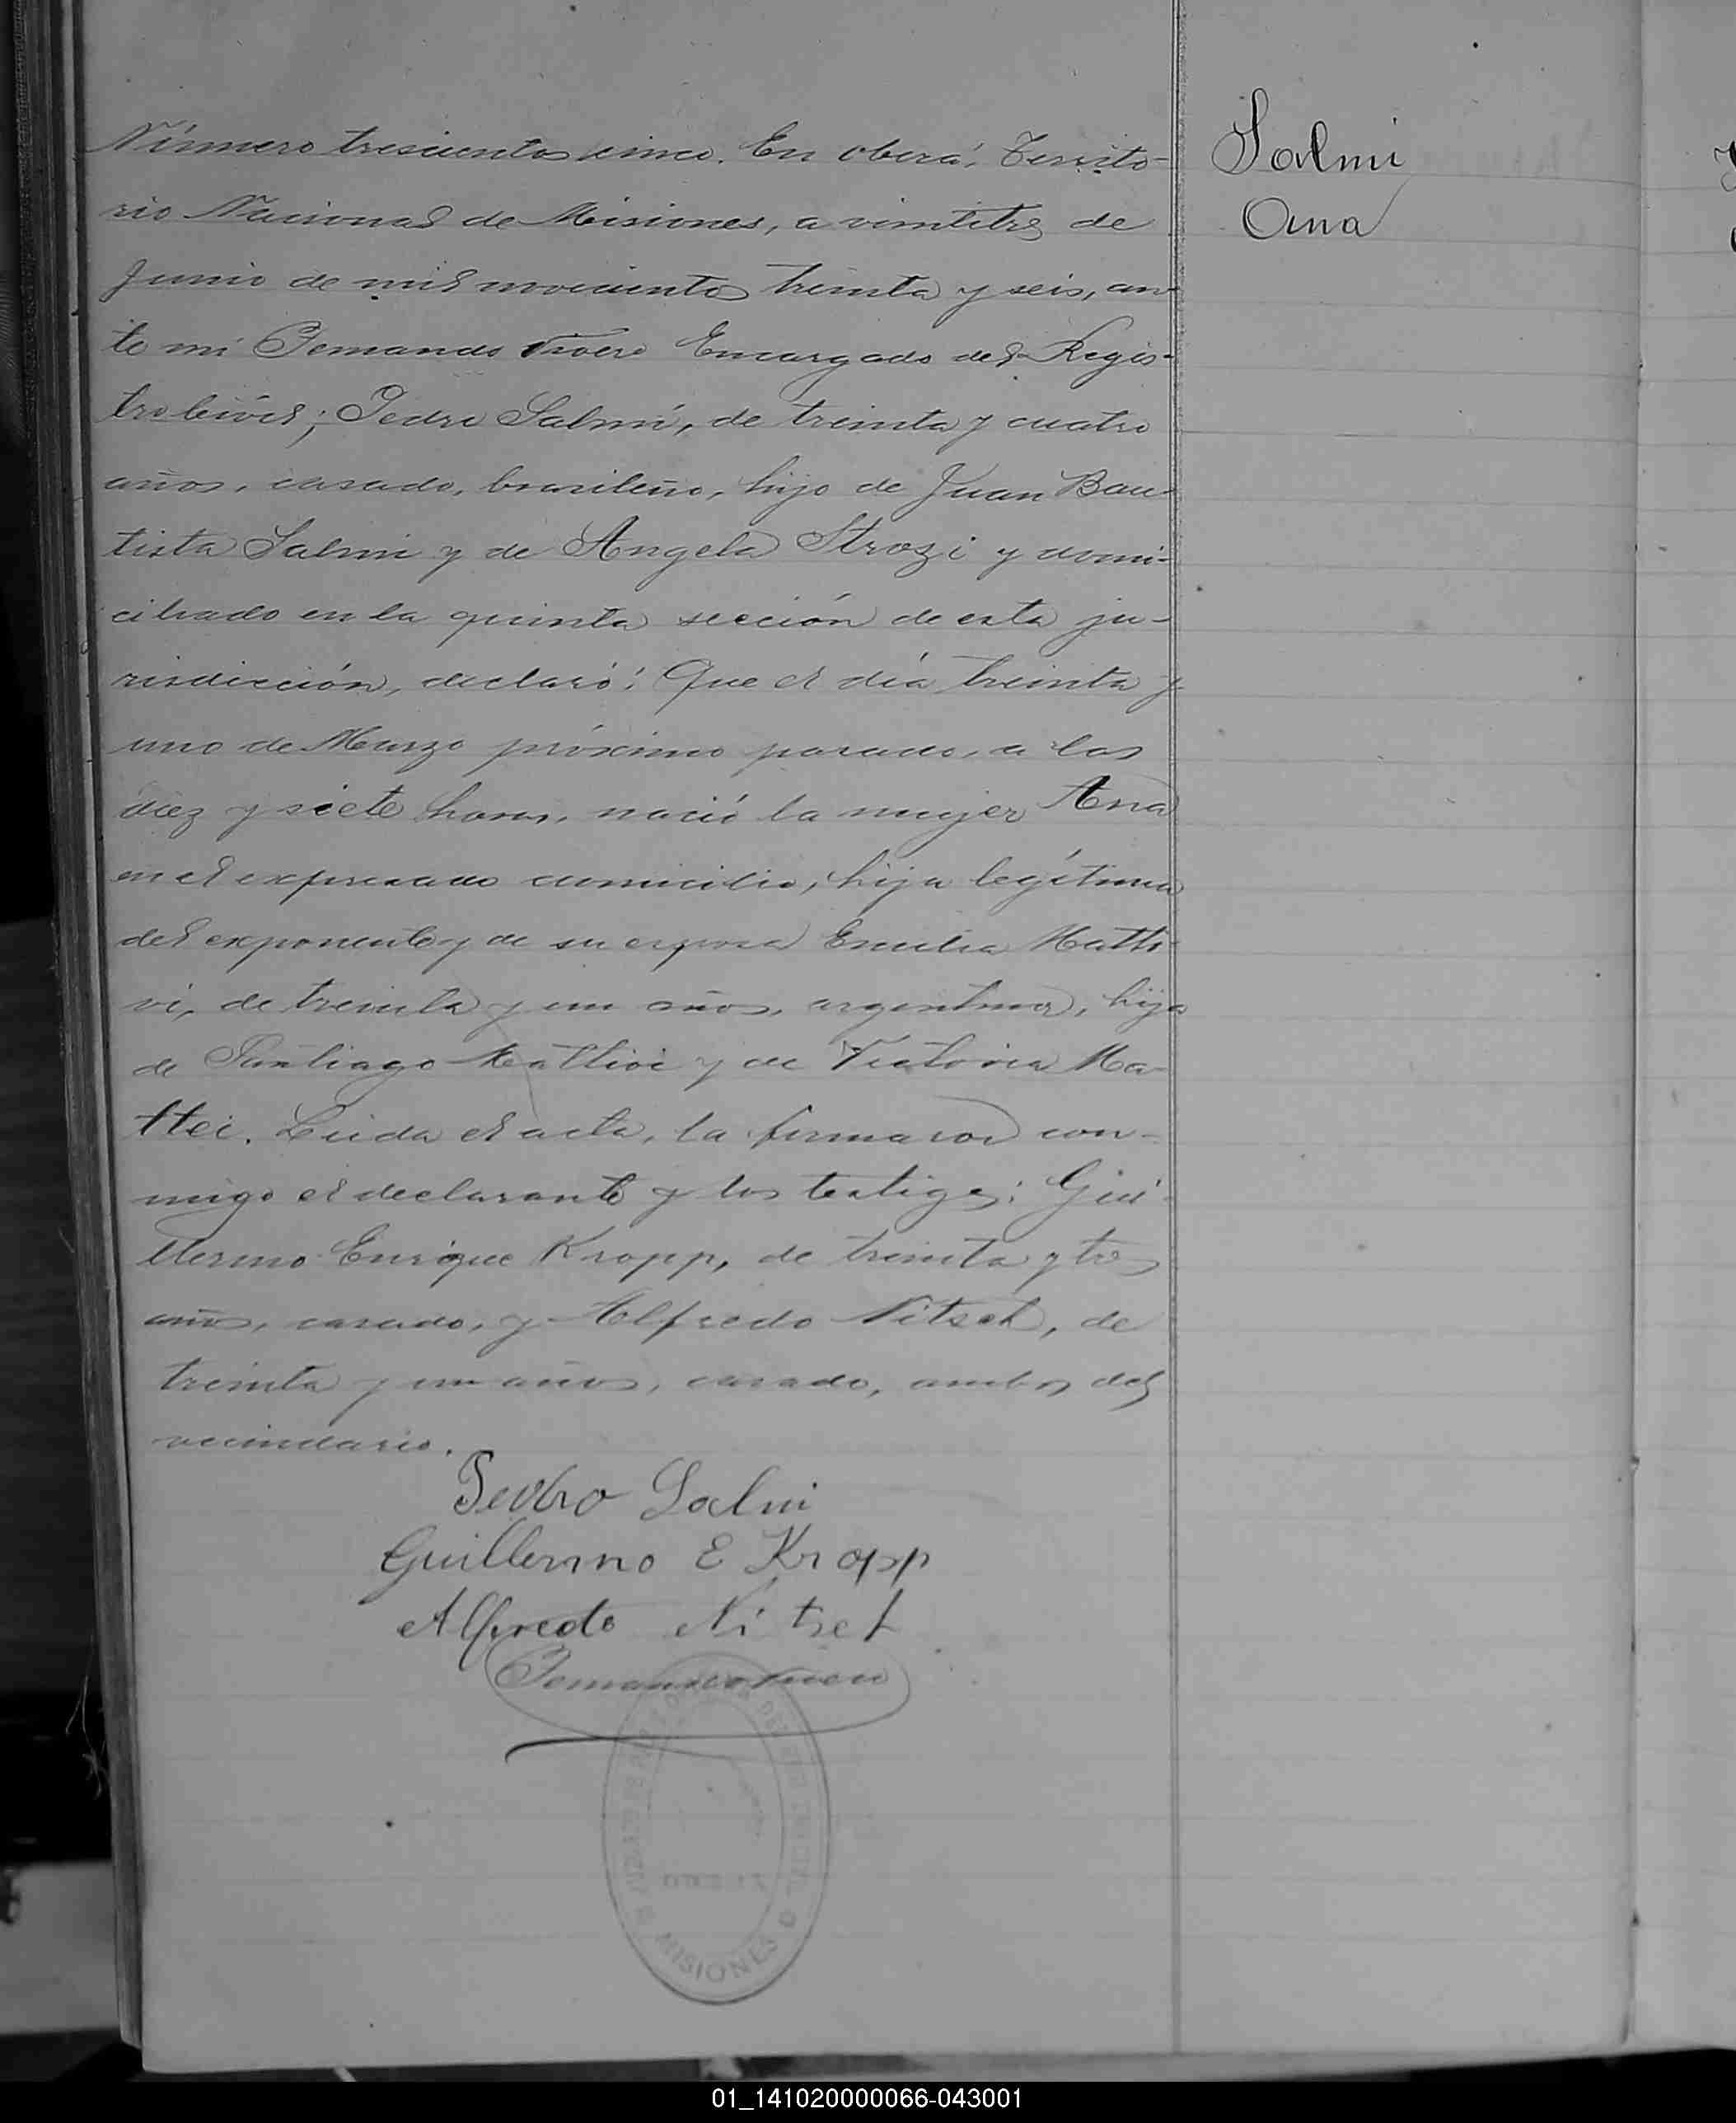 Número trescientos cinco. En Oberá, Territo-
rio Nacional de Misiones, a veintitrés de
Junio de mil novecientos treinta y seis, an-
te mi Encargado del Regis-
tro Civil; Pedro Salmi, de treinta y cuatro
años, casado, brasileño, hijo de Juan Bau-
tista Salmi y de Angela Strozi y domi-
ciliado en la quinta sección de esta ju-
risdicción, declaró: Que el día treinta y
uno de Marzo próximo pasado, a las
diez y siete horas, nació la mujer Ana
en el expresado domicilio, hija legítima
del exponente y de su esposa Emilia Matti-
vi, de treinta y un años, argentina, hija
de Santiago Mattivi y de Victoria Ma-
ttei. Leida el acta, la firmaron con-
migo el declarante y los testigos: Gui-
llermo Enrique Kropp, de treinta y tres
años, casado, y Alfredo Nitsch, de
treinta y un años, casado, ambos del
vecindario.
Pedro Salmi
Guillermo E Kropp
Alfredo Nitsch
MISIONES
Salmi
Ana
01_141020000066-043001